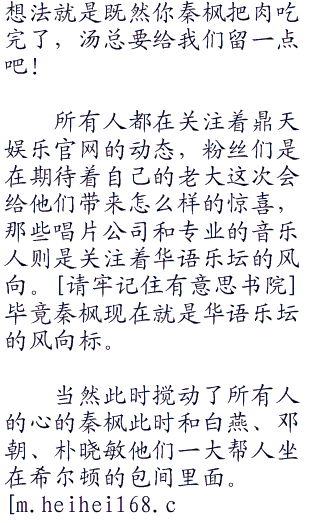 想法就是既然你秦枫把肉吃
完了，汤总要给我们留一点
吧！
所有人都在关注着鼎天
娱乐官网的动态，粉丝们是
在期待着自己的老大这次会
给他们带来怎么样的惊喜，
那些唱片公司和专业的音乐
人则是关注着华语乐坛的风
向。[请牢记住有意思书院]
毕竟秦枫现在就是华语乐坛
的风向标。
当然此时搅动了所有人
的心的秦枫此时和白燕、邓
朝、朴晓敏他们一大帮人坐
在希尔顿的包间里面。
[m.heihei168.c